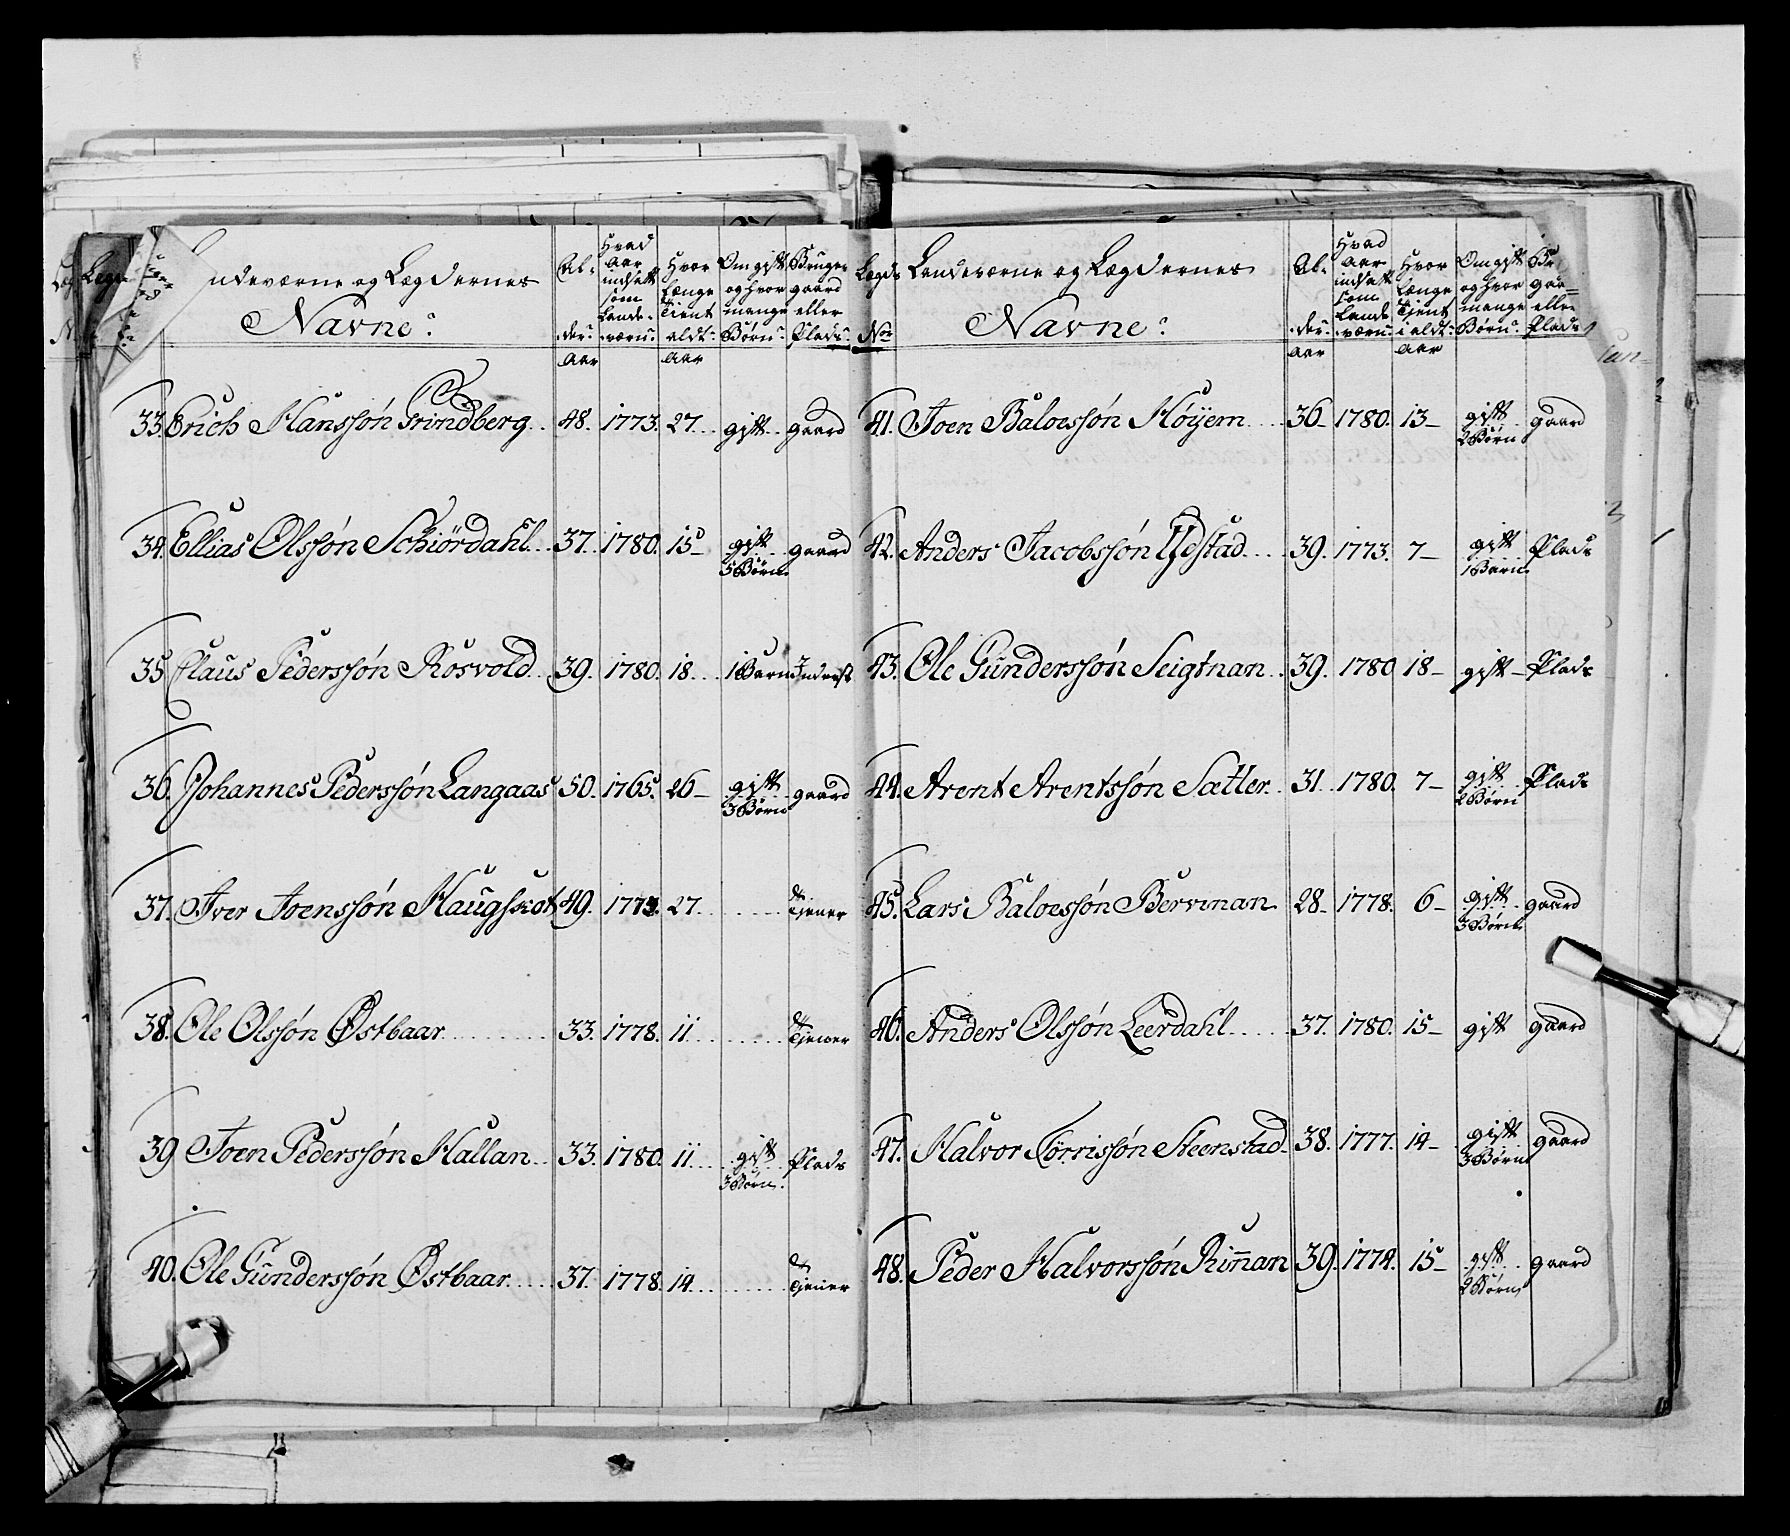 Landeværne og Lægdernes
Navne:
Al-
der:
Aar
Hvad
Aar
indsatt
som
Lande-
værn:
Hvor
Længe
Tient
i aldt:
Aar
Om gift
og hvor
mange
Børn:
Bruger
gaard
eller
Plads:
33. Erich Hanssøn Grindberg 48. 1773. 27. gift gaard
34. Ellias Olssøn Schiördahl 37. 1780. 15 gift gaard
5 Børn
35 Claus Pederssøn Rosvold 39. 1780. 18. 1 Barn Inderst
36. Johannes Pederssøn Langaas 50. 1765. 26 gift gaard
3 Børn
37. Iver Joenssøn Haugskot 49. 1773. 27. Tjener
38. Ole Olssøn Østbaar 33. 1778. 11 Tjener
39 Joen Pederssøn Hallan 33. 1780. 11 gift Plads
3 Børn
40. Ole Gunderssøn Østbaar 37. 1778. 14 Tjener
Lægds
No
Landeværne og Lægdernes
Navne:
Al-
der:
Aar
Hvad
Aar
indsatt
som
Lande
værn:
Hvor
Længe
Tient
i aldt:
Aar
Om gift
og hvor
mange
Børn:
Br
gaa-
eller
Plads
41. Joen Baloessøn Høijem 36 1780. 13 gift gaard
2 Børn
42. Anders Jacobssøn Udstad 39. 1773. 7 gift Plads
1 Barn
43. Ole Gunderssøn Seigtnan 39. 1780 18 gift Plads
44. Arent Arentssøn Sætter 31. 1780. 7 gift Plads
2 Børn
45. Lars Baloessøn Bervinan 28 1778. 6 gift gaard
3 Børn
46. Anders Olssøn Leerdahl 37. 1780. 15 gift gaard
47. Halvor Tørrissøn Steenstad 38. 1777. 14 gift gaard
3 Børn
48. Peder Halvorssøn Rin̄an 39. 1774. 15 gift gaard
2 Børn